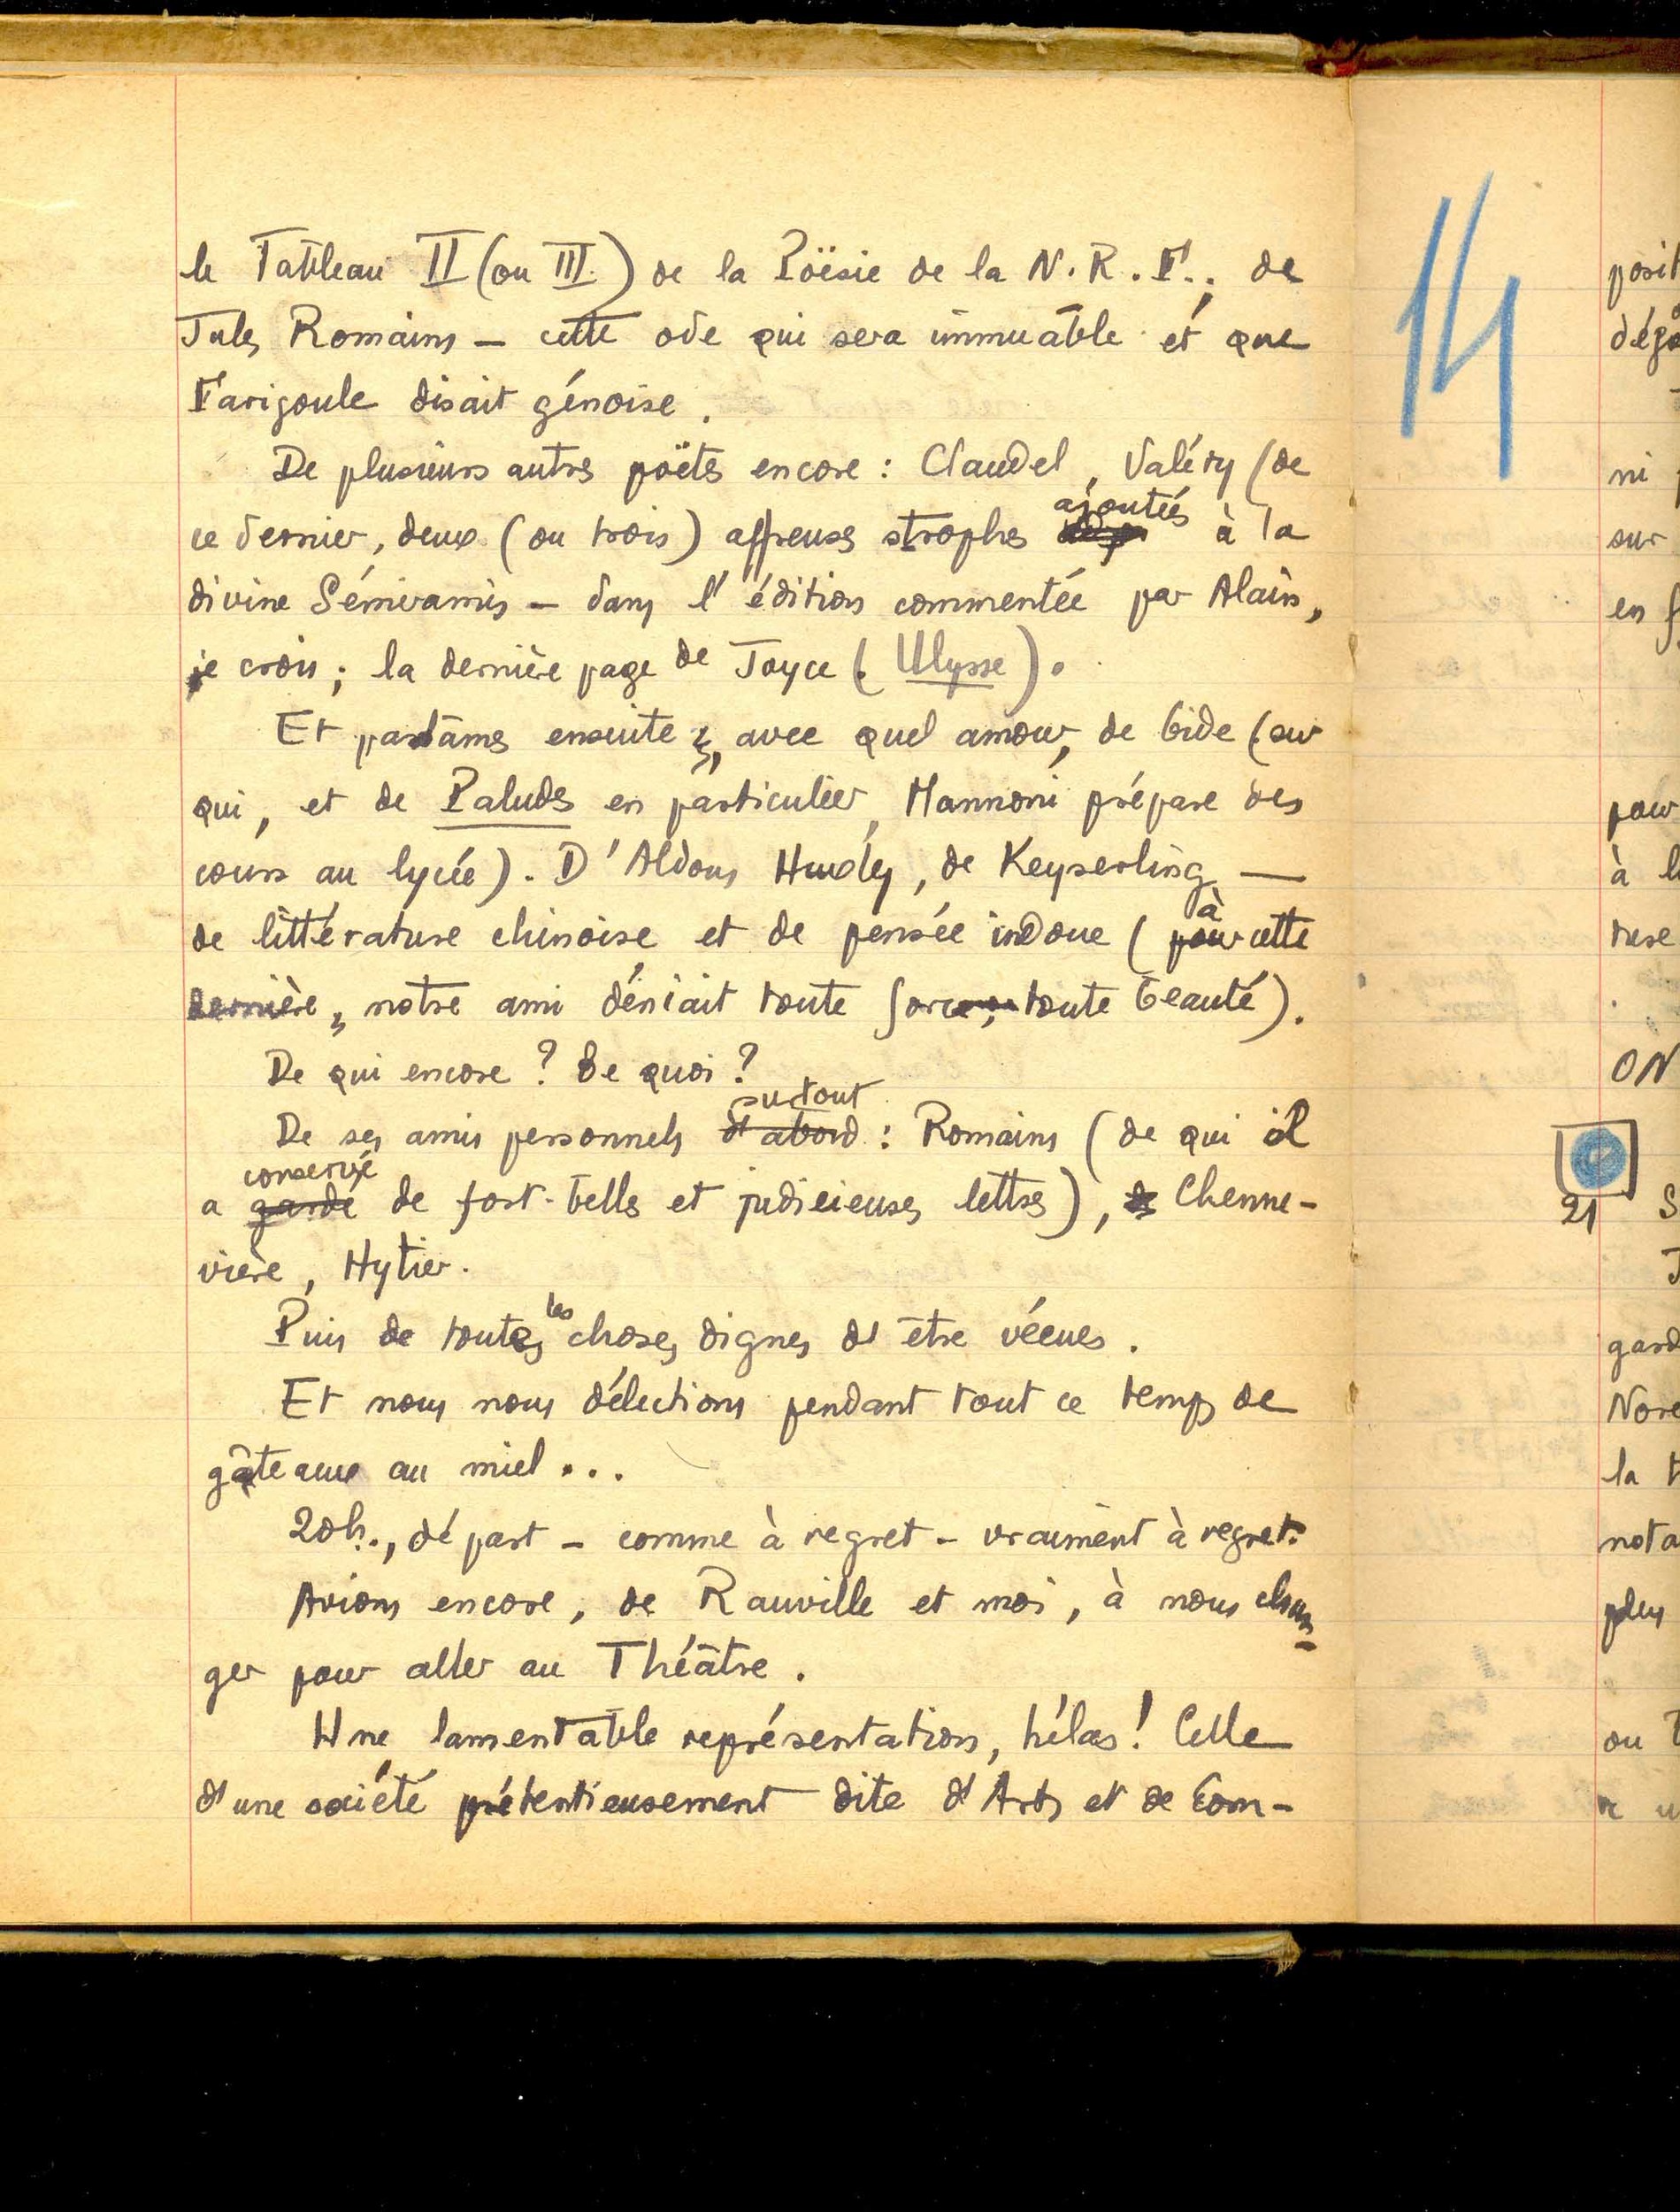 le Tableau II (ou III.) de la Poësie de la N.R.F.; de
Jules Romains – cette ode qui sera immuable et que
Farigoule disait génoise.
De plusieurs autres poëtes encore : Claudel, Valéry (de
ce dernier, deux (ou trois) affreuses strophes ajoutées à la
divine Sémiramis – dans l'édition commentée par Alain,
je crois ; la dernière page de Joyce (Ulysse).
Et parlâmes ensuite, avec quel amour, de Gide (sur
qui, et de Paludes en particulier, Mannoni prépare des
cours au lycée). D'Aldous Huxley, de Keyserling —
de littérature chinoise et de pensée indoue (à cette
dernière, notre ami déniait toute force, toute beauté).
De qui encore ? De quoi ?
De ses amis personnels d'abord surtout : Romains (de qui il
a gardé conservé de fort belles et judicieuses lettres), Chenne-
vière, Hytier.
Puis de toutes les choses dignes d'être vécues.
Et nous nous délections pendant tout ce temps de
gâteaux au miel...
20h., départ – comme à regret – vraiment à regret.
Avions encore, de Rauville et moi, à nous chan-
ger pour aller au Théâtre.
Une lamentable représentation, hélas ! Celle
d'une société prétentieusement dite d'Arts et de Com-
14
dég
ni
sur
en
pour
à l
ON
21
gard
Nore
la t
nota
plus
ou